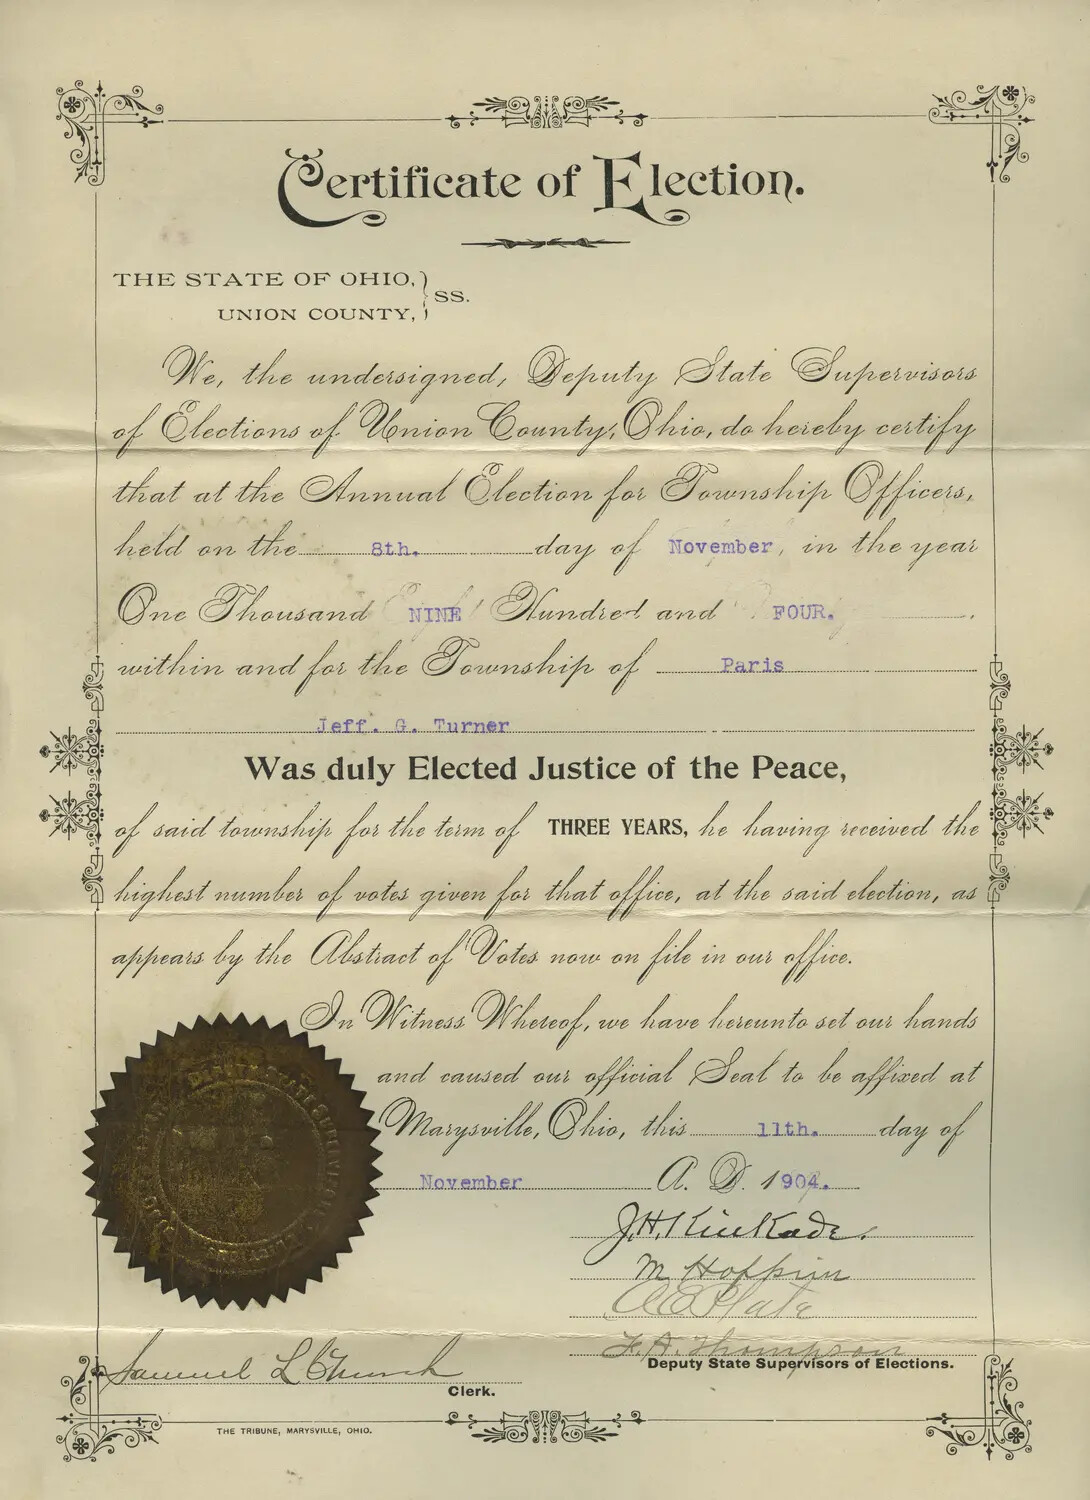 Certificate of Election.
THE STATE OF OHIO,
UNION COUNTY,
SS.
We, the undersigned, Deputy State Supervisors
of Elections of Union County, Ohio, do hereby certify
that at the Annual Election for Township Officers,
held on the 8th. day of November, in the year
One Thousand NINE Hundred and FOUR.
within and for the Township of Paris
Jeff. G. Turner
Was duly Elected Justice of the Peace,
of said township for the term of THREE YEARS, he having received the
highest number of votes given for that office, at the said election, as
appears by the Abstract of Votes now on file in our office.
In Witness Whereof, we have hereunto set our hands
and caused our official Seal to be affixed at
Marysville, Ohio, this 11th. day of
November A. D. 1904.
J. H. Kinkade.
M Hoppin
F. A. Thompson
Deputy State Supervisors of Elections.
Samuel L Church
Clerk.
THE TRIBUNE, MARYSVILLE, OHIO.